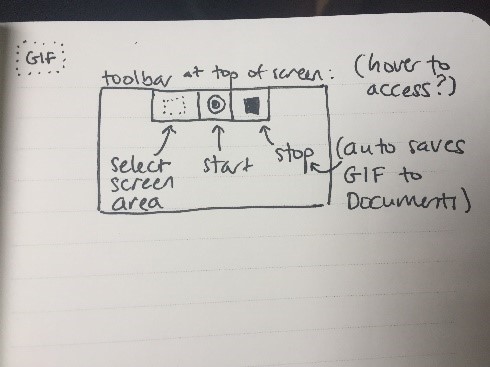 GIF
toolbar at top of screen:
(hover to
access?)
select
screen
area
start
stop
(auto saves
GIF to
Documents)